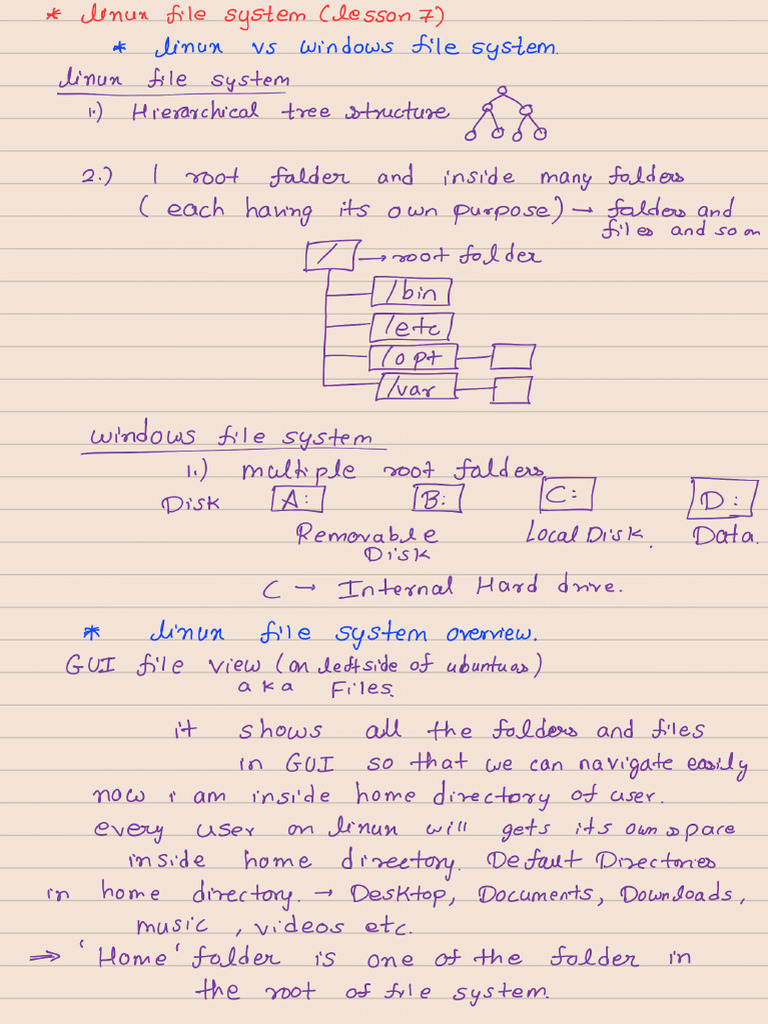 * linux file system (lesson 7)
* linux vs windows file system.
linux file system
1.) Hierarchical tree structure
2.) 1 root falder and inside many folders
( each having its own purpose) → falders and
files and so on
/ → root folder
/bin
/etc
/opt
/var
windows file system
1.) multiple root falders
Disk A: B: C: D:
Removable Local Disk. Data.
Disk
C → Internal Hard drive.
* linux file system overview.
GUI file view (on leftside of ubuntu os)
aka Files.
it shows all the folders and files
in GUI so that we can navigate easily
now i am inside home directory of user.
every user on linux will gets its own space
inside home directory. Default Directories
in home directory. → Desktop, Documents, Downloads,
music, videos etc.
⇒ 'Home' folder is one of the folder in
the root of file system.